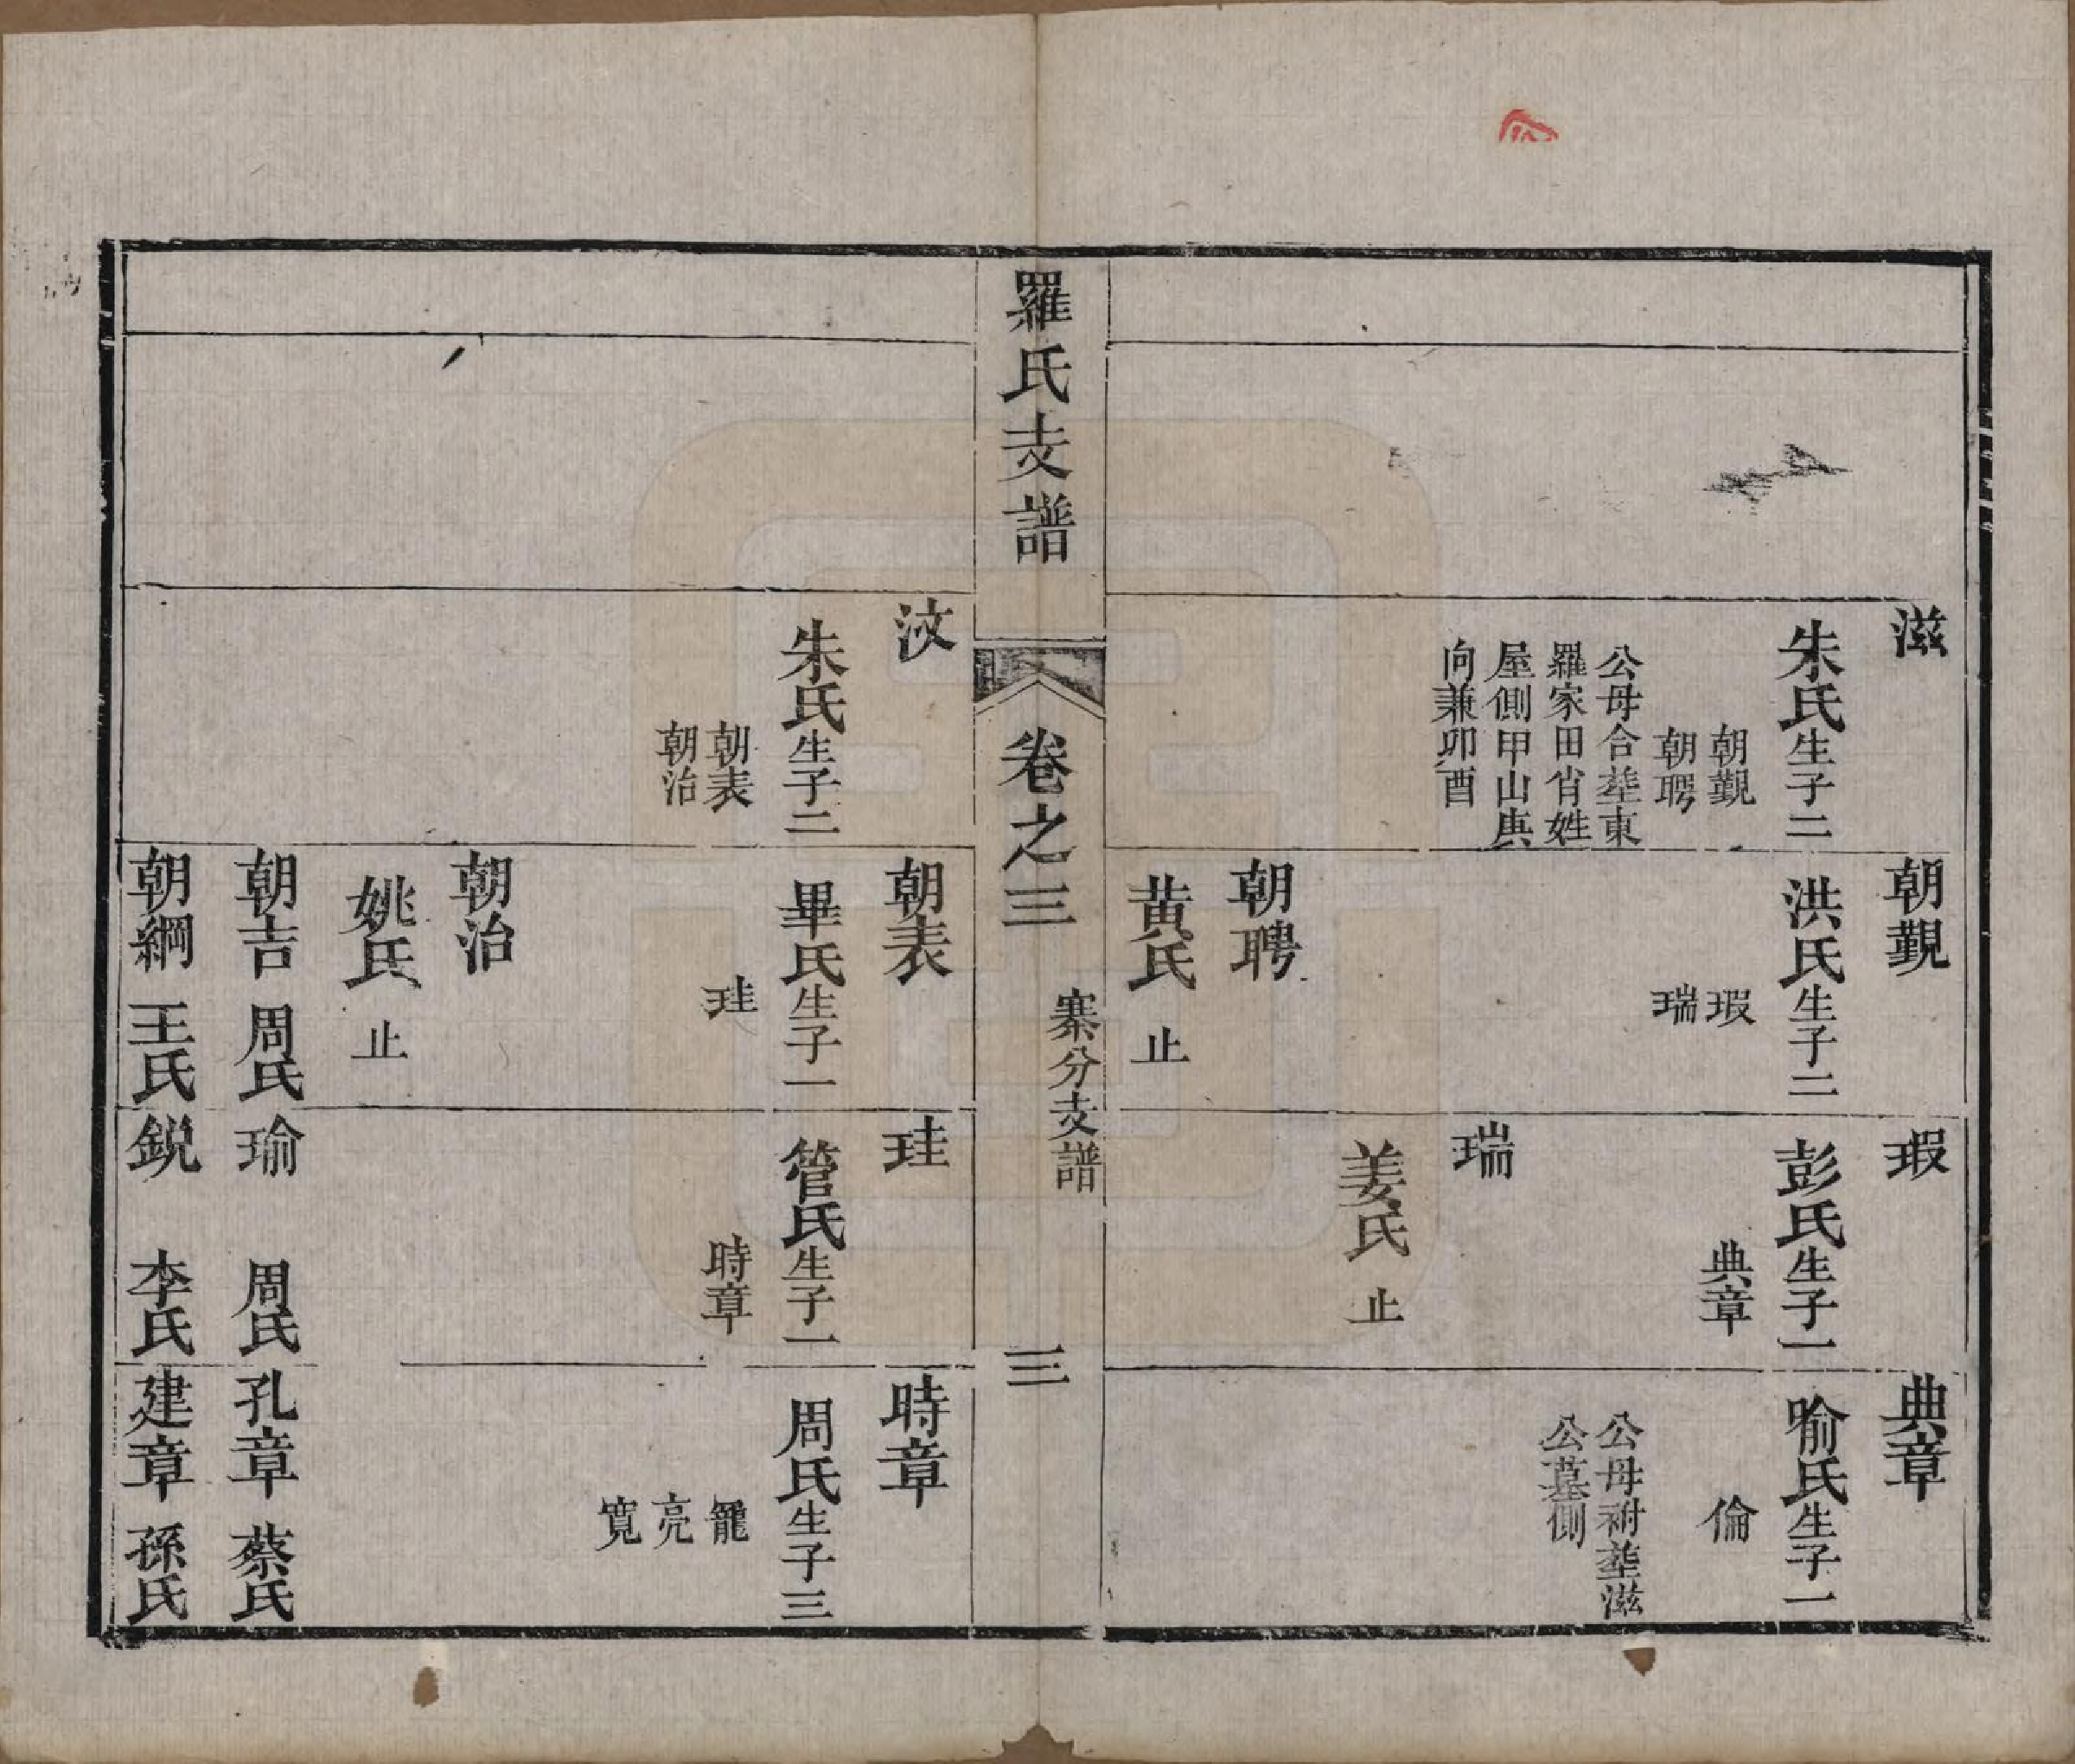 滋
朱氏生子二
朝覲
朝聘
公母合塟東
羅家田肖姓
屋側甲山庚
向兼卯酉
朝覲
洪氏生子二
瑕
瑞
朝聘
黄氏 止
瑕
彭氏生子一
典章
瑞
姜氏 止
典章
喻氏生子一
倫
公母祔塟滋
公墓側
羅氏支譜
卷之三
寨分支譜
三
汶
朱氏生子二
朝表
朝治
朝表
畢氏生子一
珪
朝治
姚氏 止
朝吉 周氏
朝綱 王氏
珪
管氏生子一
時章
瑜 周氏
鋭 李氏
時章
周氏生子三
寵
亮
寬
孔章 蔡氏
建章 孫氏